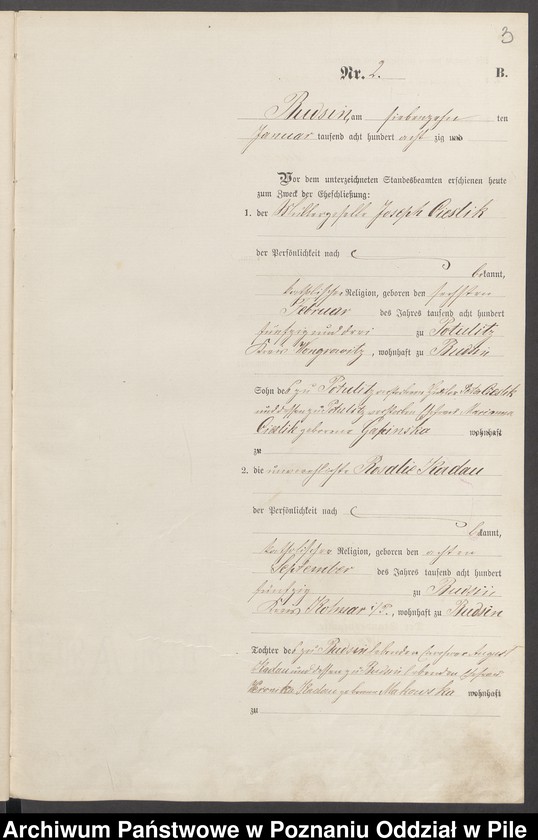 3
Nr. 2. B.
Budsin, am siebenzehn ten
Januar tausend acht hundert acht zig und
Vor dem unterzeichneten Standesbeamten erschienen heute
zum Zweck der Eheschließung:
1. der Müllergeselle Joseph Cieslik
der Persönlichkeit nach
bekannt,
katholischer Religion, geboren den sechsten
Februar des Jahres tausend acht hundert
fünfzig und drei zu Potulitz
Kreis Wongrowitz, wohnhaft zu Budsin
Sohn des zu Potulitz verstorbenen Cieslik
und dessen zu Potulitz verstorbenen Ehefrau Marianna
Cieslik geborene Gapinska wohnhaft
zu
2. die unverehelichte Rosalie Kadau
der Persönlichkeit nach
bekannt,
katholischer Religion, geboren den achten
September des Jahres tausend acht hundert
fünfzig zu Budsin
Kreis Kolmar i/P., wohnhaft zu Budsin
Tochter des zu Budsin lebenden August
Kadau und dessen zu Budsin lebenden Ehefrau
Veronika Kadau geborene Makowska wohnhaft
zu
Archiwum Państwowe w Poznaniu Oddział w Pile